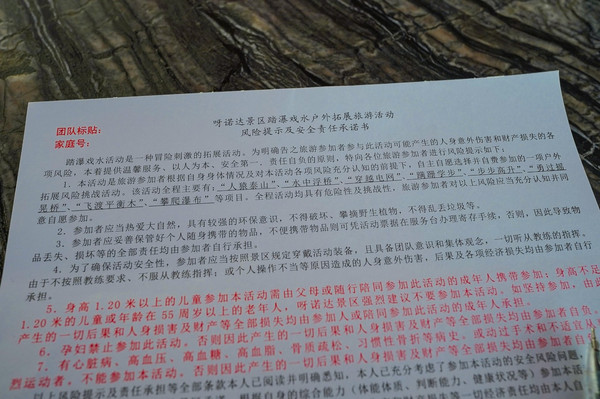 呀诺达景区踏瀑戏水户外拓展旅游活动
风险提示及安全责任承诺书
团队标贴：
家庭号：
踏瀑戏水活动是一种冒险刺激的拓展活动。为明确告之旅游参加者参与此活动可能产生的人身意外伤害和财产损失的各
项风险，本着提供温馨服务、以人为本、安全第一、责任自负的原则，特向各位旅游参加者进行风险提示如下：
1．本活动是旅游参加者根据自身身体情况及对本活动各项风险充分认知的前提下，自主自愿选择并自费参加的一项户外
拓展风险挑战活动。该活动全程主要有：“人猿泰山”、“水中浮桥”、“穿越电网”、“蹒跚学步”、“步步高升”、“勇过摇
晃桥”、“飞渡平衡木”、“攀爬瀑布”等项目。全程活动均具有危险性及挑战性，旅游参加者对以上风险应当充分认知并同
意自愿参加。
2．参加者应当热爱大自然，具有较强的环保意识，不得破坏、攀摘野生植物，不得乱丢垃圾等。
3．参加者应妥善保管好个人随身携带的物品，不便携带物品则可凭活动票据在服务台办理寄存手续，否则，因此导致物
品丢失、损坏等的全部责任均由参加者自行承担。
4．为了确保活动安全性，参加者应当按照景区规定穿戴活动装备，且具备团队意识和集体观念，一切听从教练的指挥。
由于不按照教练要求、不服从教练指挥；或个人操作不当等原因造成的人身意外伤害，后果及各项经济损失均由参加者自行
承担。
5．身高 1.20 米以上的儿童参加本活动需由父母或随行陪同参加此活动的成年人携带参加；身高不足
1.20 米的儿童或年龄在 55 周岁以上的老年人，呀诺达景区强烈建议不要参加本活动。如坚持参加，由此
产生的一切后果和人身损害及财产等全部损失均由参加人或陪同参加此活动的成年人承担。
6．孕妇禁止参加此活动。否则因此产生的一切后果和人身损害及财产等全部损失均由参加者自负。
7．有心脏病、高血压、高血糖、高血脂、骨质疏松、习惯性骨折等病史，或动过手术和不适宜从
烈运动者，不能参加本活动。否则因此产生的一切后果和人身损害及财产等全部损失均由参加者自行
以上风险提示及责任承诺等全部条款本人已阅读并明确悉知，本人已充分考虑了参加本活动的安全风险问题，
根据自身的综合能力（体能体质、判断能力、健康状况等）参加本活